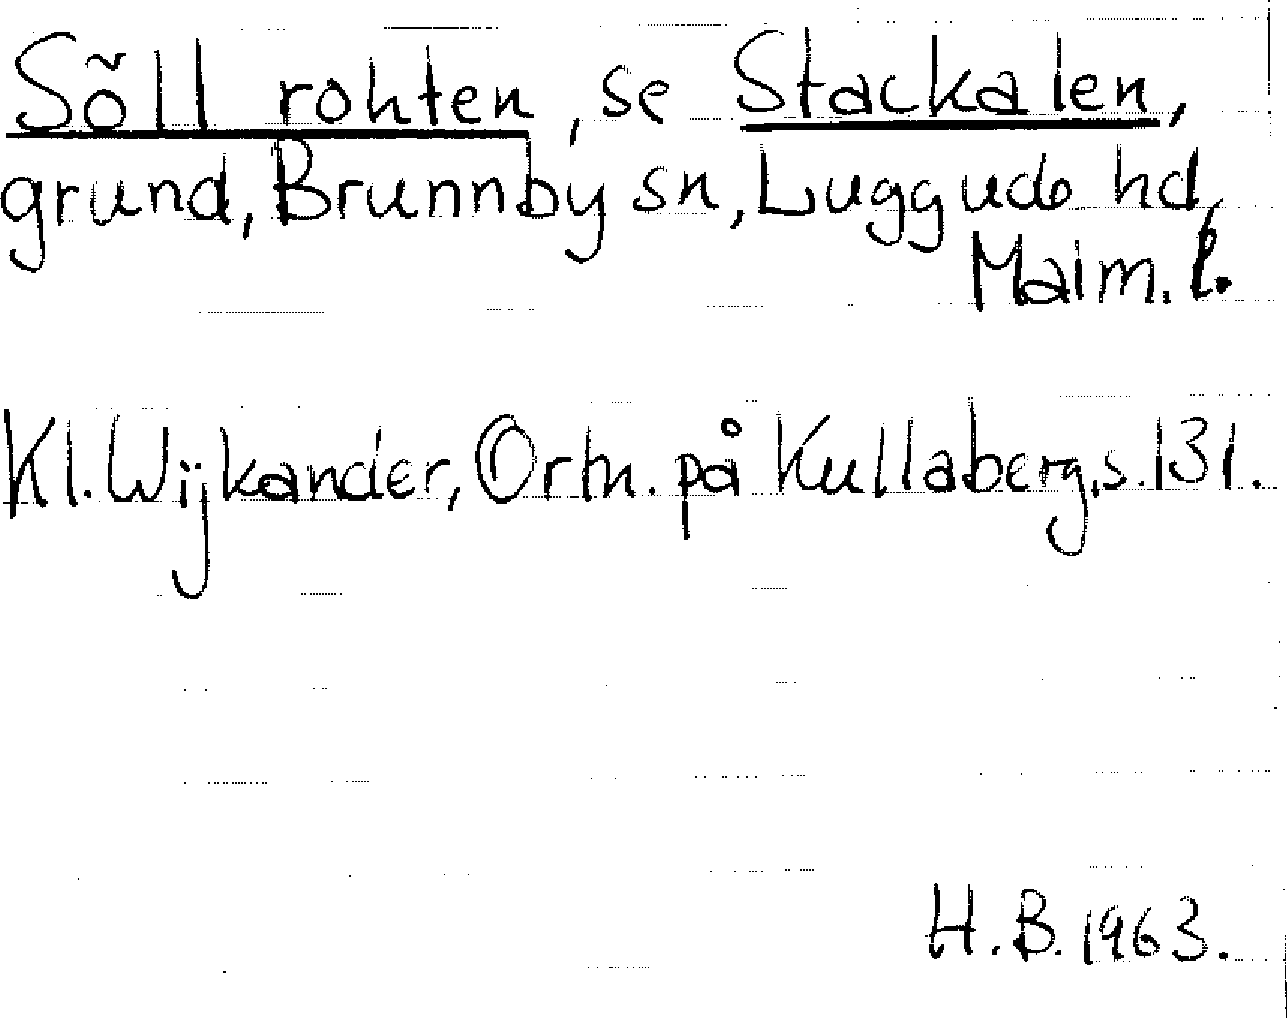 Sõll rohten, se Stackalen,
grund, Brunnby sn, Luggude hd,
Malm. l.
Kl. Wijkander, Ortn. på Kullaberg, s. 131.
H.B. 1963.